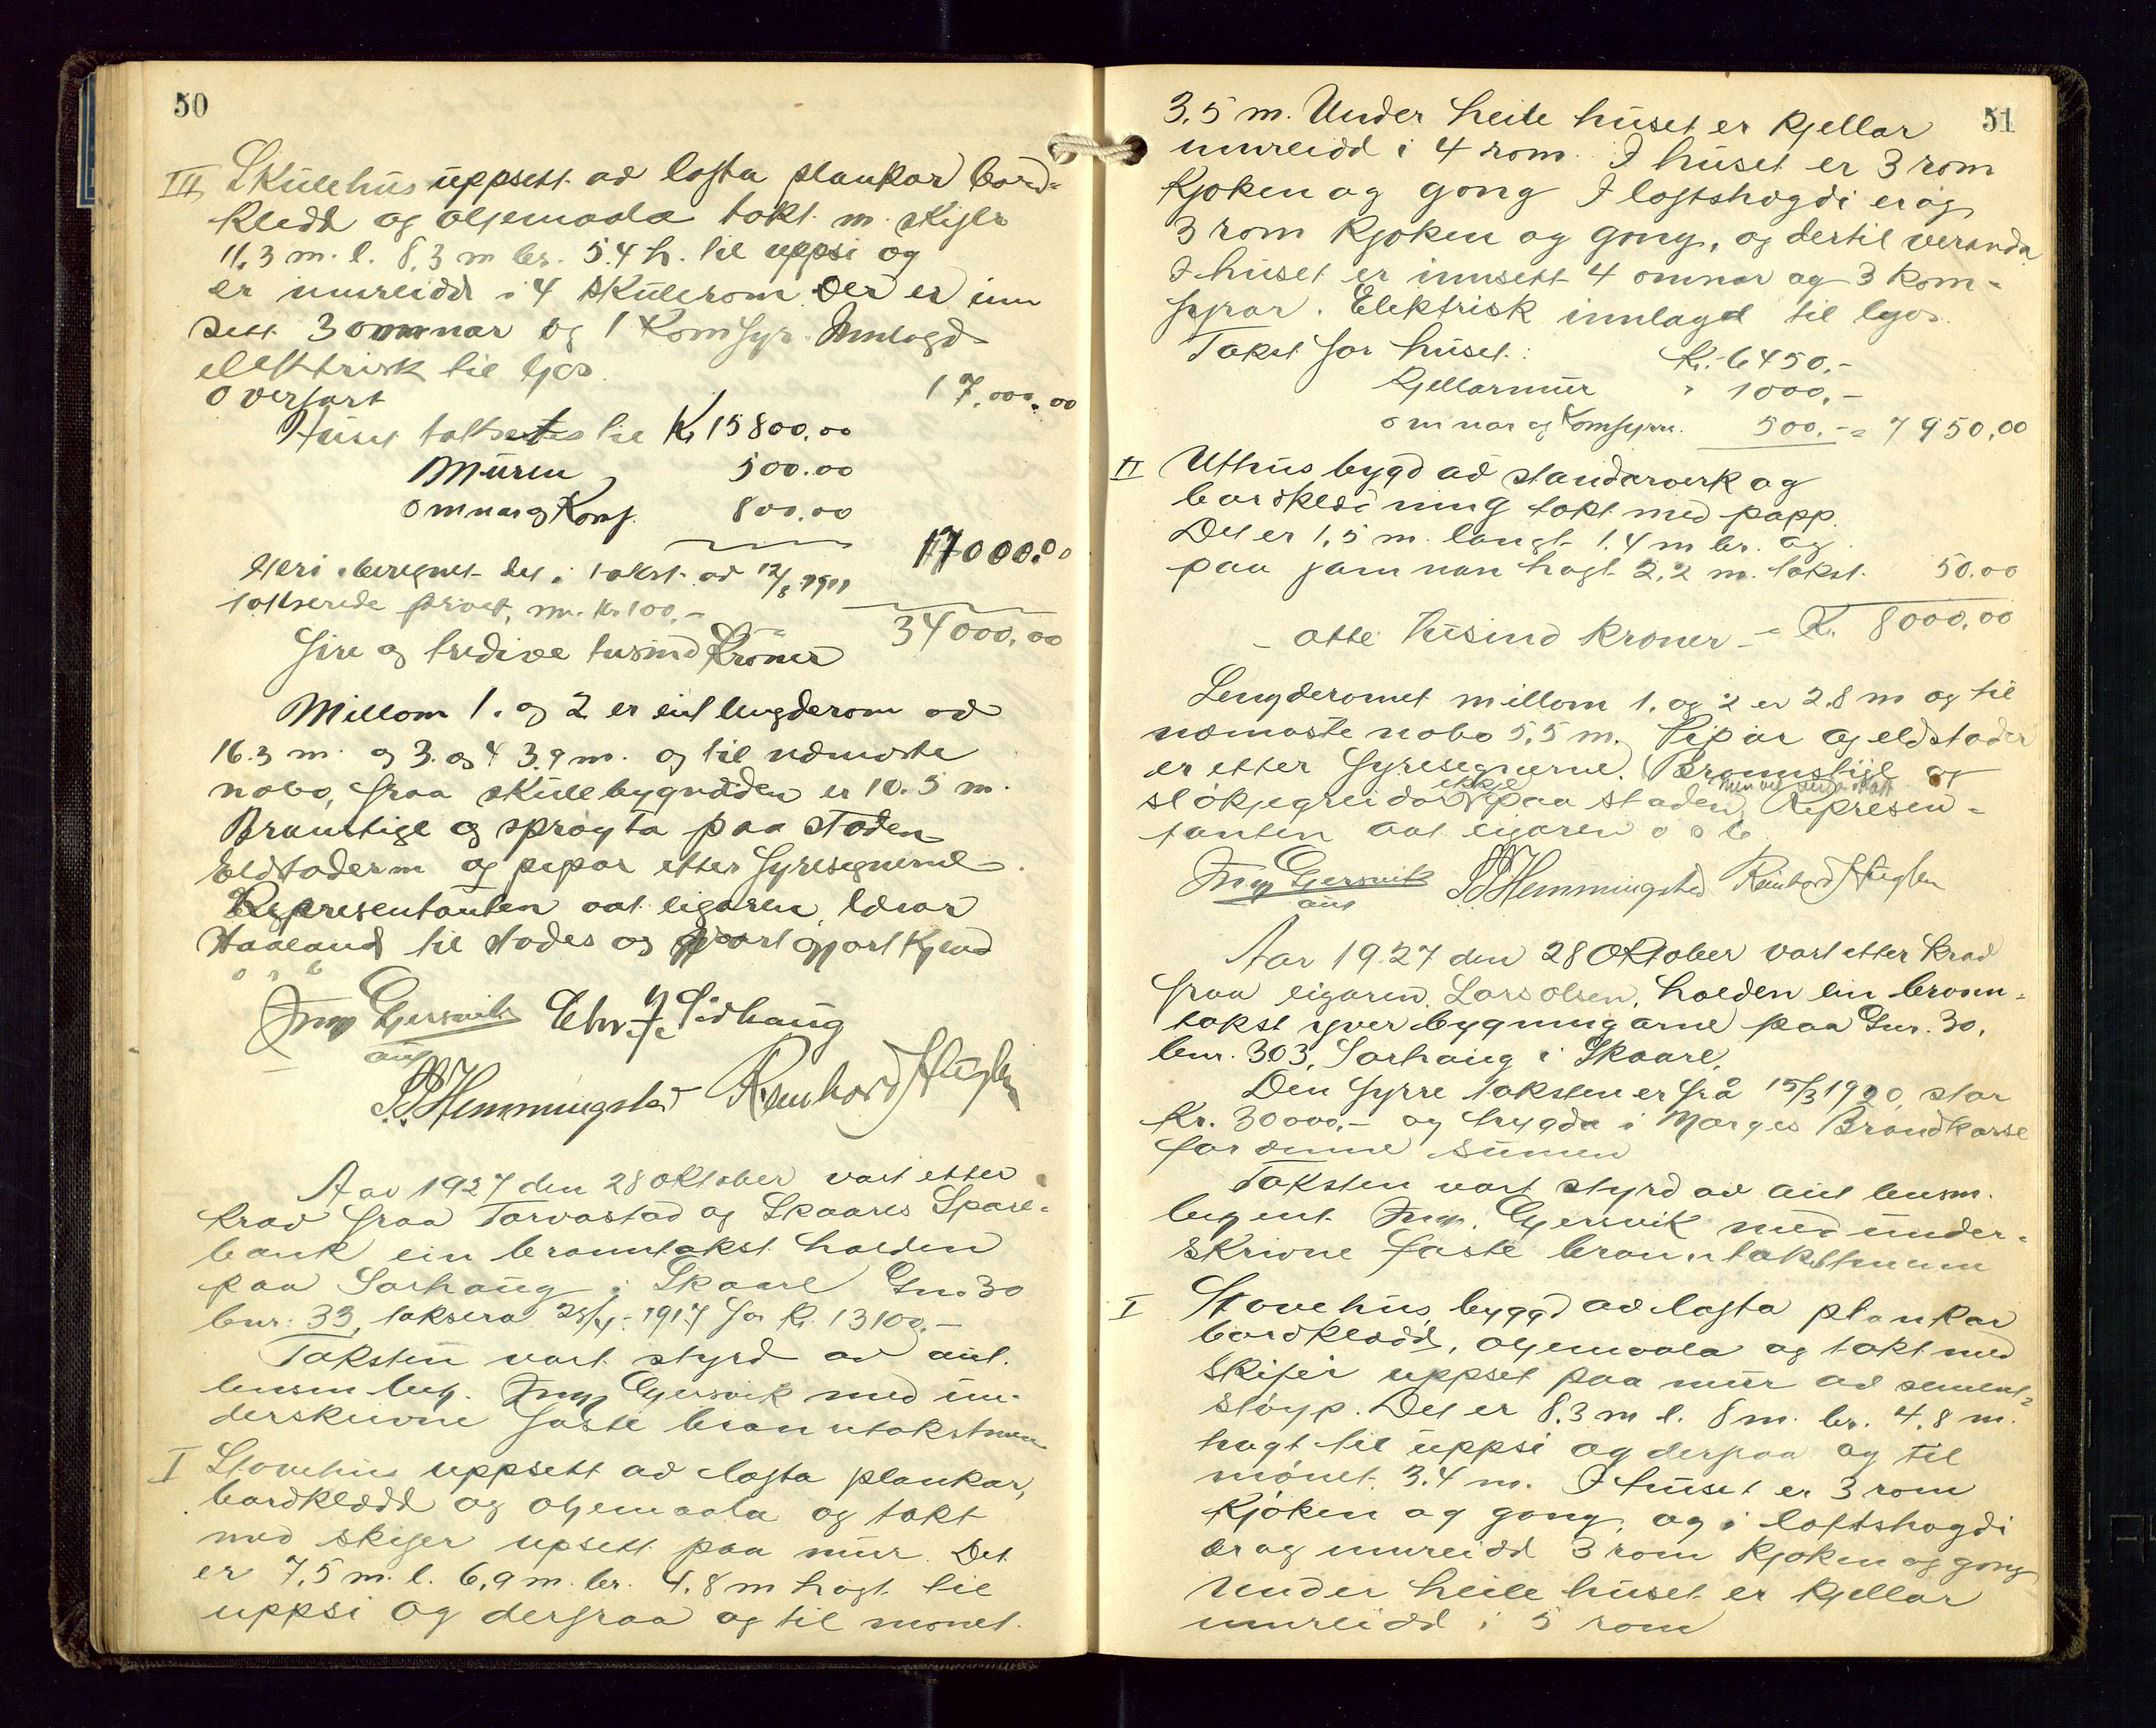 50
III Skulehus uppsett ad lafta plankar bord-
kledd og oljemaala tekt m. skifer
11,3 m. l. 8,3 m br. 5.4 h. til uppsi og
er innreidd i 4 skulerom. Der er inn
sett 3 omnar og 1 Komfyr. Innlagd
elektrisk til ljos.
Overfart 17.000,00
Huset takseres til Kr 15800.00
Muren 500.00
omnar og Komf. 800.00
17000.00
Heri beregnet det i takst ad 12/8 1911
takserede privet, nr. kr 100,-
34000,00
Fire og tredive tusind Kroner
Millom 1. og 2 er eit lengderom ad
16.3 m. og 3. og 4 3.9 m. og til næmaste
nabo, fraa skulebygnaden er 10.5 m.
Brannstige og sprøyta paa staden
Eldstaderne og pipar etter fyresegnerne.
Representanten aat eigaren, lærar
Haaland til stades og gjort kjend
o s b
Ing. Gjersvik Chr. F. Sørhaug
aut
S.S. Hemmingstad Reinhard Fuglen
Aar 1927 den 28 oktober vart etter
krav fraa Torvastad og Skaares Spare-
bank ein branntakst halden
paa Sørhaug i Skaare Gnr 30
bnr: 33, taksera 23/4-1917 for Kr. 13100.-
Taksten vart styrd av aut.
lensm. bet. Ing. Gjersvik med un-
derskrivne faste branntakstmenn
I Stovehus uppsett ad lafta plankar,
bordklædd og oljemaala og tekt
med skifer upsett paa mur. Det
er 7,5 m. l. 6,9 m. br. 4,8 m høgt til
uppsi og derfraa og til mønet
51
3,5 m. Under heile huset er Kjellar
innreidd i 4 rom. I huset er 3 rom
Kjøken og gong I loftshøgdi er og
3 rom Kjøken og gong, og dertil veranda
I huset er innsett 4 omnar og 3 kom-
fyrar. Elektrisk innlagd til ljos.
Takst for huset: Kr. 6450.-
Kjellarmur " 1000,-
omnar og Komfyrer. 500.- = 7950,00
II Uthus bygd ad standarverk og
bordkledning tekt med papp.
Det er 1,5 m. langt 1.4 m br. og
paa jamnen høgt 2,2 m. takst. 50.00
- otte tusind kroner - = Kr. 8000,00
Lengderomet millom 1. og 2 er 2.8 m og til
næmaste nabo 5,5 m. Pipar og eldstader
er etter fyresegnerne. Brannstige og
sløkjegreidor ikkje paa staden, Represen-
tanten aat eigaren o s b
Ing Gjersvik S.S. Hemmingstad Reinhard Fuglen
aut
Aar 1927 den 28 Oktober vart etter krav
fraa eigaren, Lars Olsen, halden ein brann-
takst yver bygningarne paa Gnr. 30,
bnr. 303, Sørhaug i Skaare.
Den fyrre taksten er frå 15/3 1920, stor
Kr. 30000,- og trygda i Norges Brandkasse
for denne sumen
Taksten vart styrd av aut lensm.
betjent. Ing. Gjersvik med under-
skrivne faste branntakstmenn
I Stovehus, byggd ad lafta plankar
bordklædd, oljemaala og tekt med
skifer uppset paa mur ad sement-
støyp. Det er 8.3 m l. 8 m. br. 4.8 m.
høgt til uppsi og derfraa og til
mønet 3.4 m. I huset er 3 rom
Kjøken og gong, og i loftshøgdi
er og innreidd 3 rom Kjøken og gong
Under heile huset er Kjellar
innreidd i 5 rom